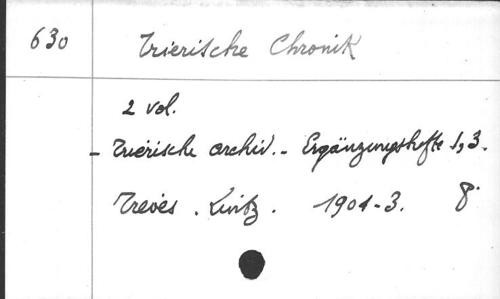 630 Trierische Chronik
2 vol.
- Trierische archiv. - Ergänzungshefte 1, 3.
Treves. Lintz. 1901-3. 8°